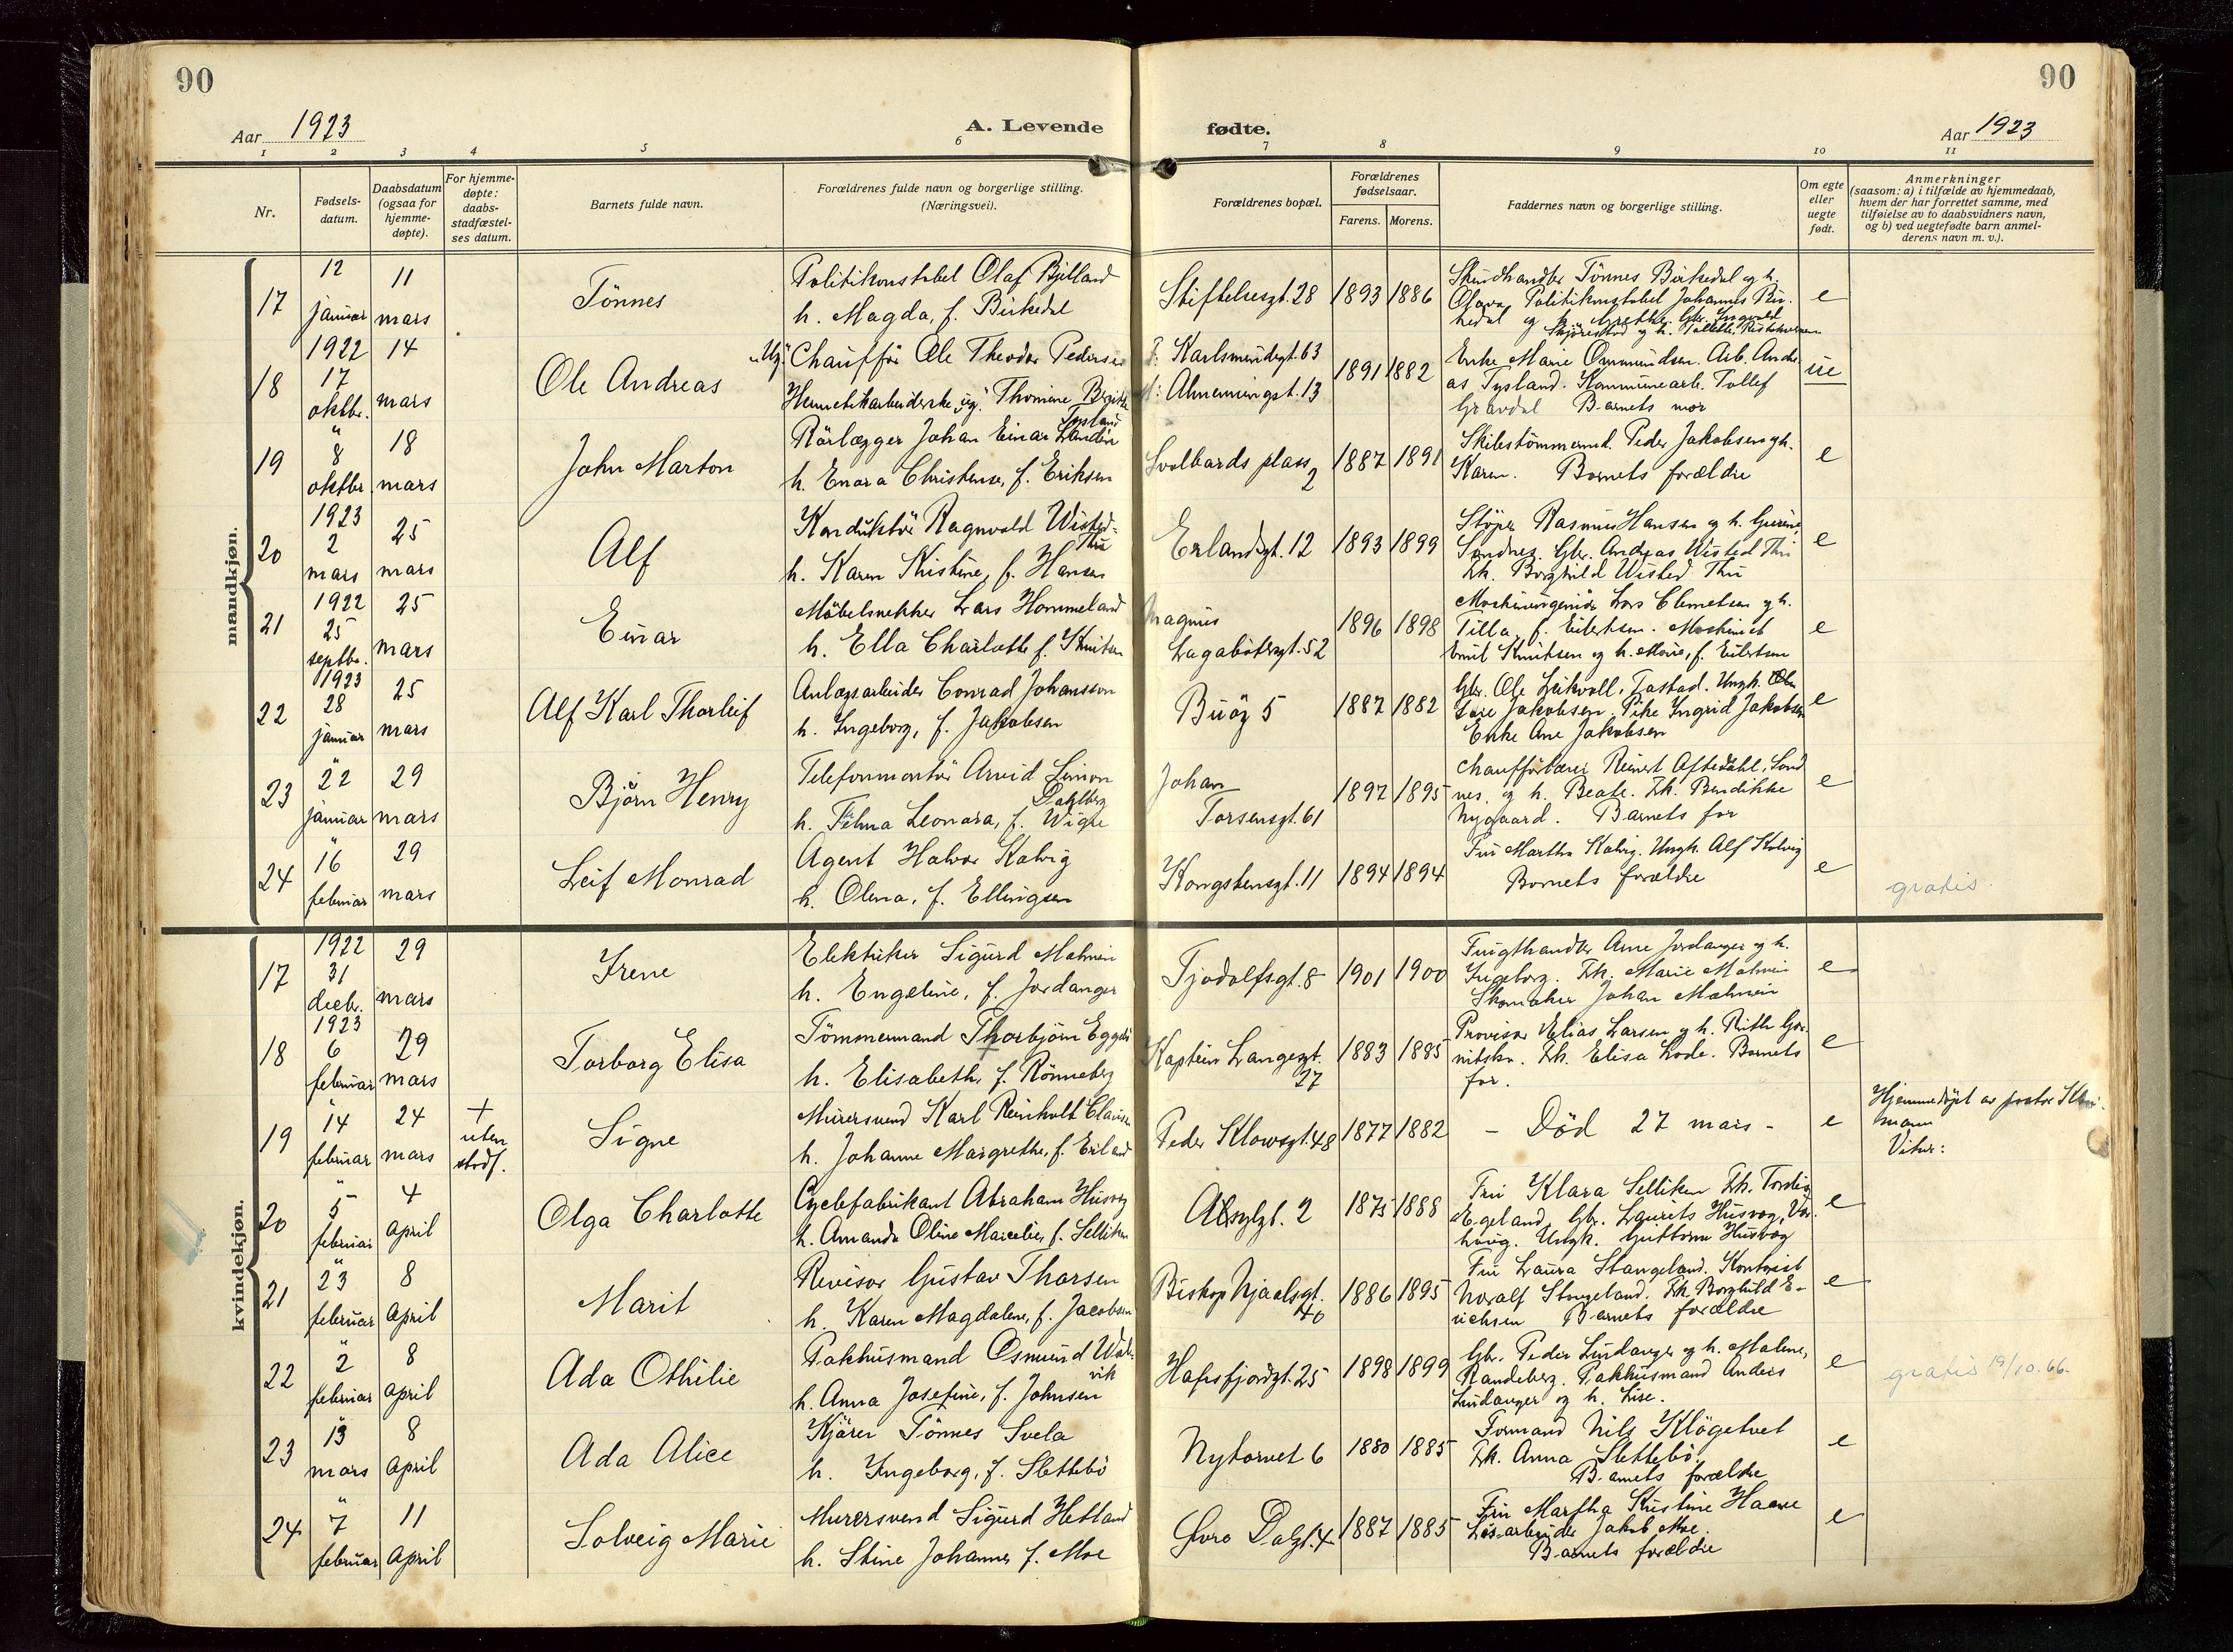 90
90
Aar 1923
A. Levende
fødte.
Aar 1923
1
2
3
4
5
6
7
8
9
10
11
Nr.
Fødsels-
datum.
Daabsdatum
(ogsaa for
hjemme-
døpte).
For hjemme-
døpte:
daabs-
stadfæstel-
ses datum.
Barnets fulde navn.
Forældrenes fulde navn og borgerlige stilling.
(Næringsvei).
Forældrenes bopæl.
Forældrenes
fødselsaar.
Farens.
Morens.
Faddernes navn og borgerlige stilling.
Om egte
eller
uegte
født.
Anmerkninger
(saasom: a) i tilfælde av hjemmedaab,
hvem der har forrettet samme, med
tilføielse av to daabsvidners navn,
og b) ved uegtefødte barn anmel-
derens navn m. v.).
mandkjøn.
17
12
januar
11
mars
Tönnes
Politikonstabel Olaf
h. Magda, f. Birkedal
Stiftelsesgt. 28
1893
1886
Tönnes Birkedal og h.
Politikonstabel Johannes Bir-
kedal og h.
e
18
1922
17
oktbr.
14
mars
Ole Andreas
"Ug" Chauffør Ole Theodor Pedersen
Hermetikarbeiderske "ug" Thomine
Tysland
F: Karlsmindegt. 63
M: Almenningst. 13
1891
1882
Enke Marie Ommundsen. Arb. Andre-
as Tysland. Kommunearb. Tollef
Gravdal Barnets mor
ue
19
"
8
oktbr.
18
mars
John Marton
Rörlægger Johan Einar Landin
h. Enora Christense, f. Eriksen
Svolbards plass
2
1887
1891
Skibstömmermd. Peder Jakobsen og h.
Karen. Barnets forældre
e
20
1923
2
mars
25
mars
Alf
Konduktör Ragnvald Wisted-
Thu
h. Karen Kristine, f. Hansen
Erlandsgt. 12
1893
1899
Støper Rasmus Hansen og h. Gurine,
Sandnes. Gbr. Andreas Wisted Thu
Frk. Borghild Wisted Thu
e
21
1922
25
septbr.
25
mars
Einar
Möbelsnekker Lars Hommeland
h. Ella Charlotte f. Knutsen
Magnus
Lagabötersgt. 52
1896
1898
Maskiningeniör Lars Clemetsen og h.
Tilla, f. Eilertsen. Maskinist
Emil Knutsen og h. Marie, f. Eilertsen
e
22
1923
28
januar
25
mars
Alf Karl Thorleif
Anlægsarbeider Conrad Johansson
h. Ingeborg, f. Jakobsen
Buöy 5
1887
1882
Gbr. Ole Leikvoll, Tastad. Ungk.
Jakobsen. Pike Ingrid Jakobsen
Enke Ane Jakobsen
e
23
"
22
januar
29
mars
Björn Henry
Telefonmontör Arvid Simon
Dahlberg
h. Telma Leonora, f. Wigre
Johan
Torsensgt. 61
1897
1895
Chaufför Reinert Aftedahl, Sand-
nes, og h. Beate. Frk. Bendikke
Nygaard. Barnets far
e
24
"
16
februar
29
mars
Leif Monrad
Agent Halvor Kalvig
h. Olena, f. Ellingsen
Kongstensgt. 11
1894
1894
Fru Martha Kalvig. Ungk. Alf Kalvig
Barnets forældre
e
gratis.
kvindekjøn.
17
1922
31
decbr.
29
mars
Irene
Elektriker Sigurd Malmin
h. Engeline, f. Jordanger
Tjodolfsgt. 8
1901
1900
Frugthandler Arne Jordanger og h.
Ingeborg. Frk. Marie Malmin
Skomaker Johan Malmin
e
18
1923
6
februar
29
mars
Torborg Elisa
Tömmermand Thorbjörn
h. Elisabeth, f. Rönneberg
Kaptein Langesgt.
27
1883
1885
Provisor Elias Larsen og h.
Frk. Elisa Lode. Barnets
far.
e
19
"
14
februar
24
mars
+
uten
stadf.
Signe
Murersvend Karl Reinholt Clausen
h. Johanne Margrethe, f. Erland
Peder Klowsgt. 48
1877
1882
- Död 27 mars -
e
Hjemmedöpt av pastor
mann
Vitner:
20
"
5
februar
4
April
Olga Charlotte
Cyclefabrikant Abraham Husvæg
h. Amanda Oline f. Selliken
2
1875
1888
Fru Klara Selliken Frk. Tordis
Egeland, Gbr. Laurits Husvæg,
Ungk. Guttorm Husvæg
e
21
"
23
februar
8
April
Marit
Revisor Gustav Thorsen
h. Karen Magdalene, f. Jacobsen
Biskop Njaelsgt.
40
1886
1895
Fru Laura Stangeland. Kontorist
Noralf Stangeland. Frk. Borghild E-
richsen Barnets forældre
e
22
"
2
februar
8
April
Ada Othilie
Pakhusmand Osmund
vik
h. Anna Josefine, f. Johnsen
Hafrsfjordgt. 25
1898
1899
Gbr. Peder Lindanger og h. Malene,
Randeberg. Pakhusmand Anders
Lindanger og h. Lise.
e
gratis 19/10.66.
23
"
13
mars
8
April
Ada Alice
Kjörer Tönnes Svela
h. Ingeborg, f. Slettebö
Nytorvet 6
1880
1885
Formand Nils Klögetvet
Frk. Anna Slettebö.
Barnets forældre
e
24
"
7
februar
11
April
Solveig Marie
Murersvend Sigurd Hetland
h. Stine Johanne f. Moe
Guro Dalgt. 4
1887
1885
Fru Martha Kristine Haave
Lösarbeider Jakob Moe.
Barnets forældre
e